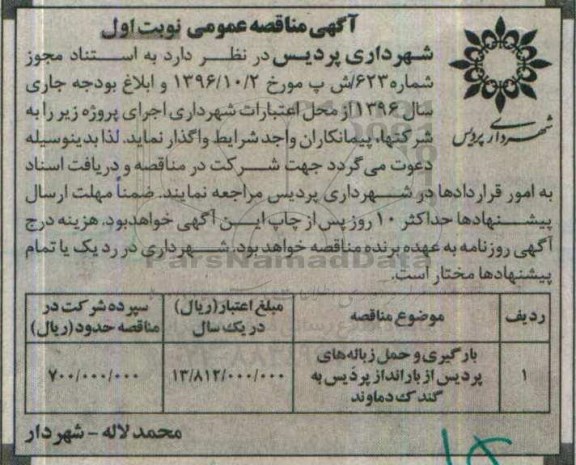 آگهی مناقصه عمومی نوبت اول
شهرداری پردیس در نظر دارد به استناد مجوز
شماره ۶۲۳/ش پ مورخ ۱۳۹۶/۱۰/۲ و ابلاغ بودجه جاری
سال ۱۳۹۶ از محل اعتبارات شهرداری اجرای پروژه زیر را به
شرکتها، پیمانکاران واجد شرایط واگذار نماید. لذا بدینوسیله
دعوت می گردد جهت شرکت در مناقصه و دریافت اسناد
به امور قراردادها در شهرداری پردیس مراجعه نمایند. ضمناً مهلت ارسال
پیشنهادها حداکثر ۱۰ روز پس از چاپ این آگهی خواهد بود. هزینه درج
آگهی روزنامه به عهده برنده مناقصه خواهد بود. شهرداری در رد یک یا تمام
پیشنهادها مختار است.
شهرداری پردیس
ParsNamadData
ردیف
موضوع مناقصه
مبلغ اعتبار (ریال)
در یک سال
سپرده شرکت در
مناقصه حدود (ریال)
۱
بارگیری و حمل زباله های
پردیس از بارانداز پردیس به
گندک دماوند
۱۳/۸۱۲/۰۰۰/۰۰۰
۷۰۰/۰۰۰/۰۰۰
محمد لاله - شهردار